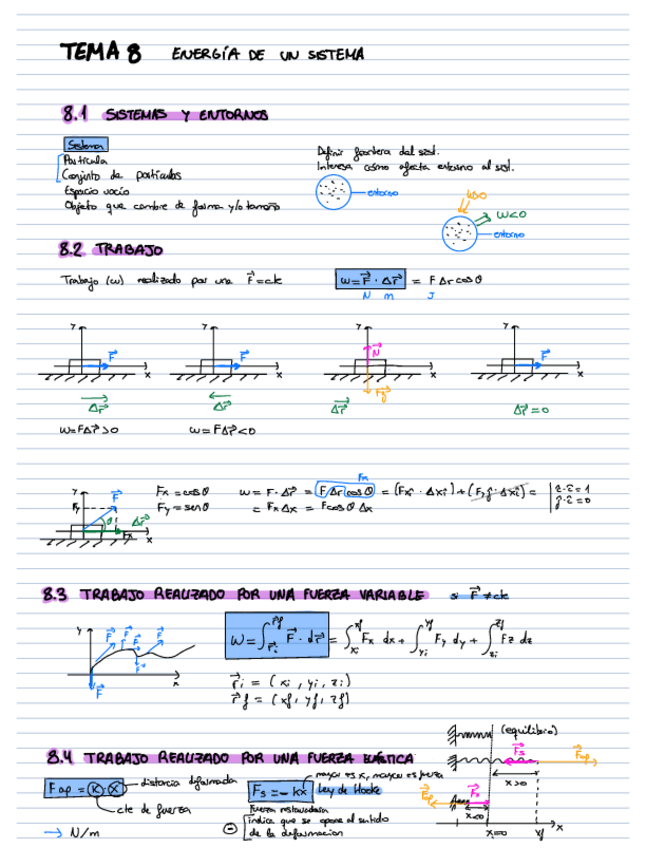 TEMA 8 ENERGÍA DE UN SISTEMA
8.1 SISTEMAS Y ENTORNOS
Sistema
Partícula
Conjunto de partículas
Espacio vacío
Objeto que cambie de forma y/o tamaño
Definir frontera del sist.
Interesa cómo afecta entorno al sist.
entorno
W>0
W<0
entorno
8.2 TRABAJO
Trabajo (w) realizado por una F⃗=cte
w=F⃗·Δr⃗ = FΔr cosθ
N m J
y F⃗ x
y F⃗ x
y N⃗ Fg⃗ x
y F⃗ x
Δr⃗
Δr⃗
Δr⃗
Δr⃗=0
w=FΔr⃗>0
w=FΔr⃗<0
y F⃗ Fy θ Δr⃗ Fx x
Fx = cosθ
Fy = senθ
Fx
w = F·Δr⃗ = FΔr cosθ = (Fxî · Δxî) + (Fyĵ · Δxî) =
= FxΔx = FcosθΔx
î·î=1
ĵ·î=0
8.3 TRABAJO REALIZADO POR UNA FUERZA VARIABLE si F⃗≠cte
y F⃗ F⃗ F⃗ F⃗ F⃗ F⃗ x
W=∫r⃗i r⃗f F⃗·dr⃗ = ∫xi xf Fx dx + ∫yi yf Fy dy + ∫zi zf Fz dz
r⃗i = (xi, yi, zi)
r⃗f = (xf, yf, zf)
8.4 TRABAJO REALIZADO POR UNA FUERZA ELÁSTICA
Fap = K·X
distancia deformada
cte de fuerza
→ N/m
mayor es K, mayor es fuerza
Fs = -kx Ley de Hooke
Fuerza restauradora
⊖ indica que se opone al sentido
de la deformacion
(equilibrio)
F⃗s
F⃗ap
x>0
F⃗s
x<0
x=0 xf x